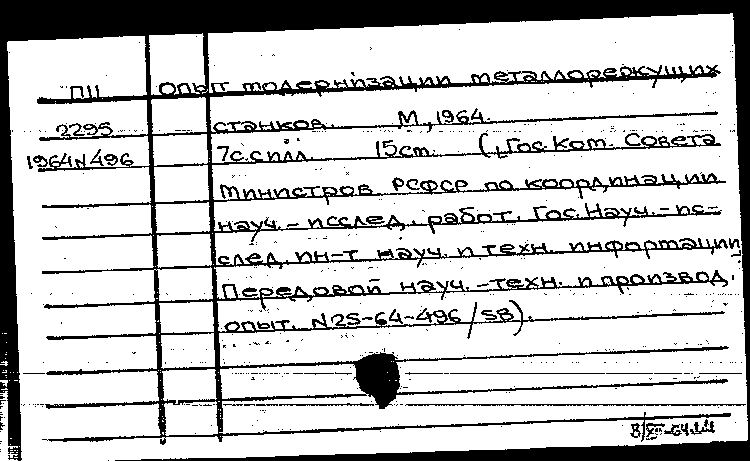 ПИ Опыт модернизации металлорежущих
2295 станков. М., 1964.
1964 N 496 7с.с илл. 15см. (Гос.Ком. Совета
Министров РСФСР по координации
науч.-исслед. работ. Гос.Науч.-ис-
след. ин-т науч. и техн. информации
Передовой науч.-техн. и производ.
опыт. N25-64-496/5В).